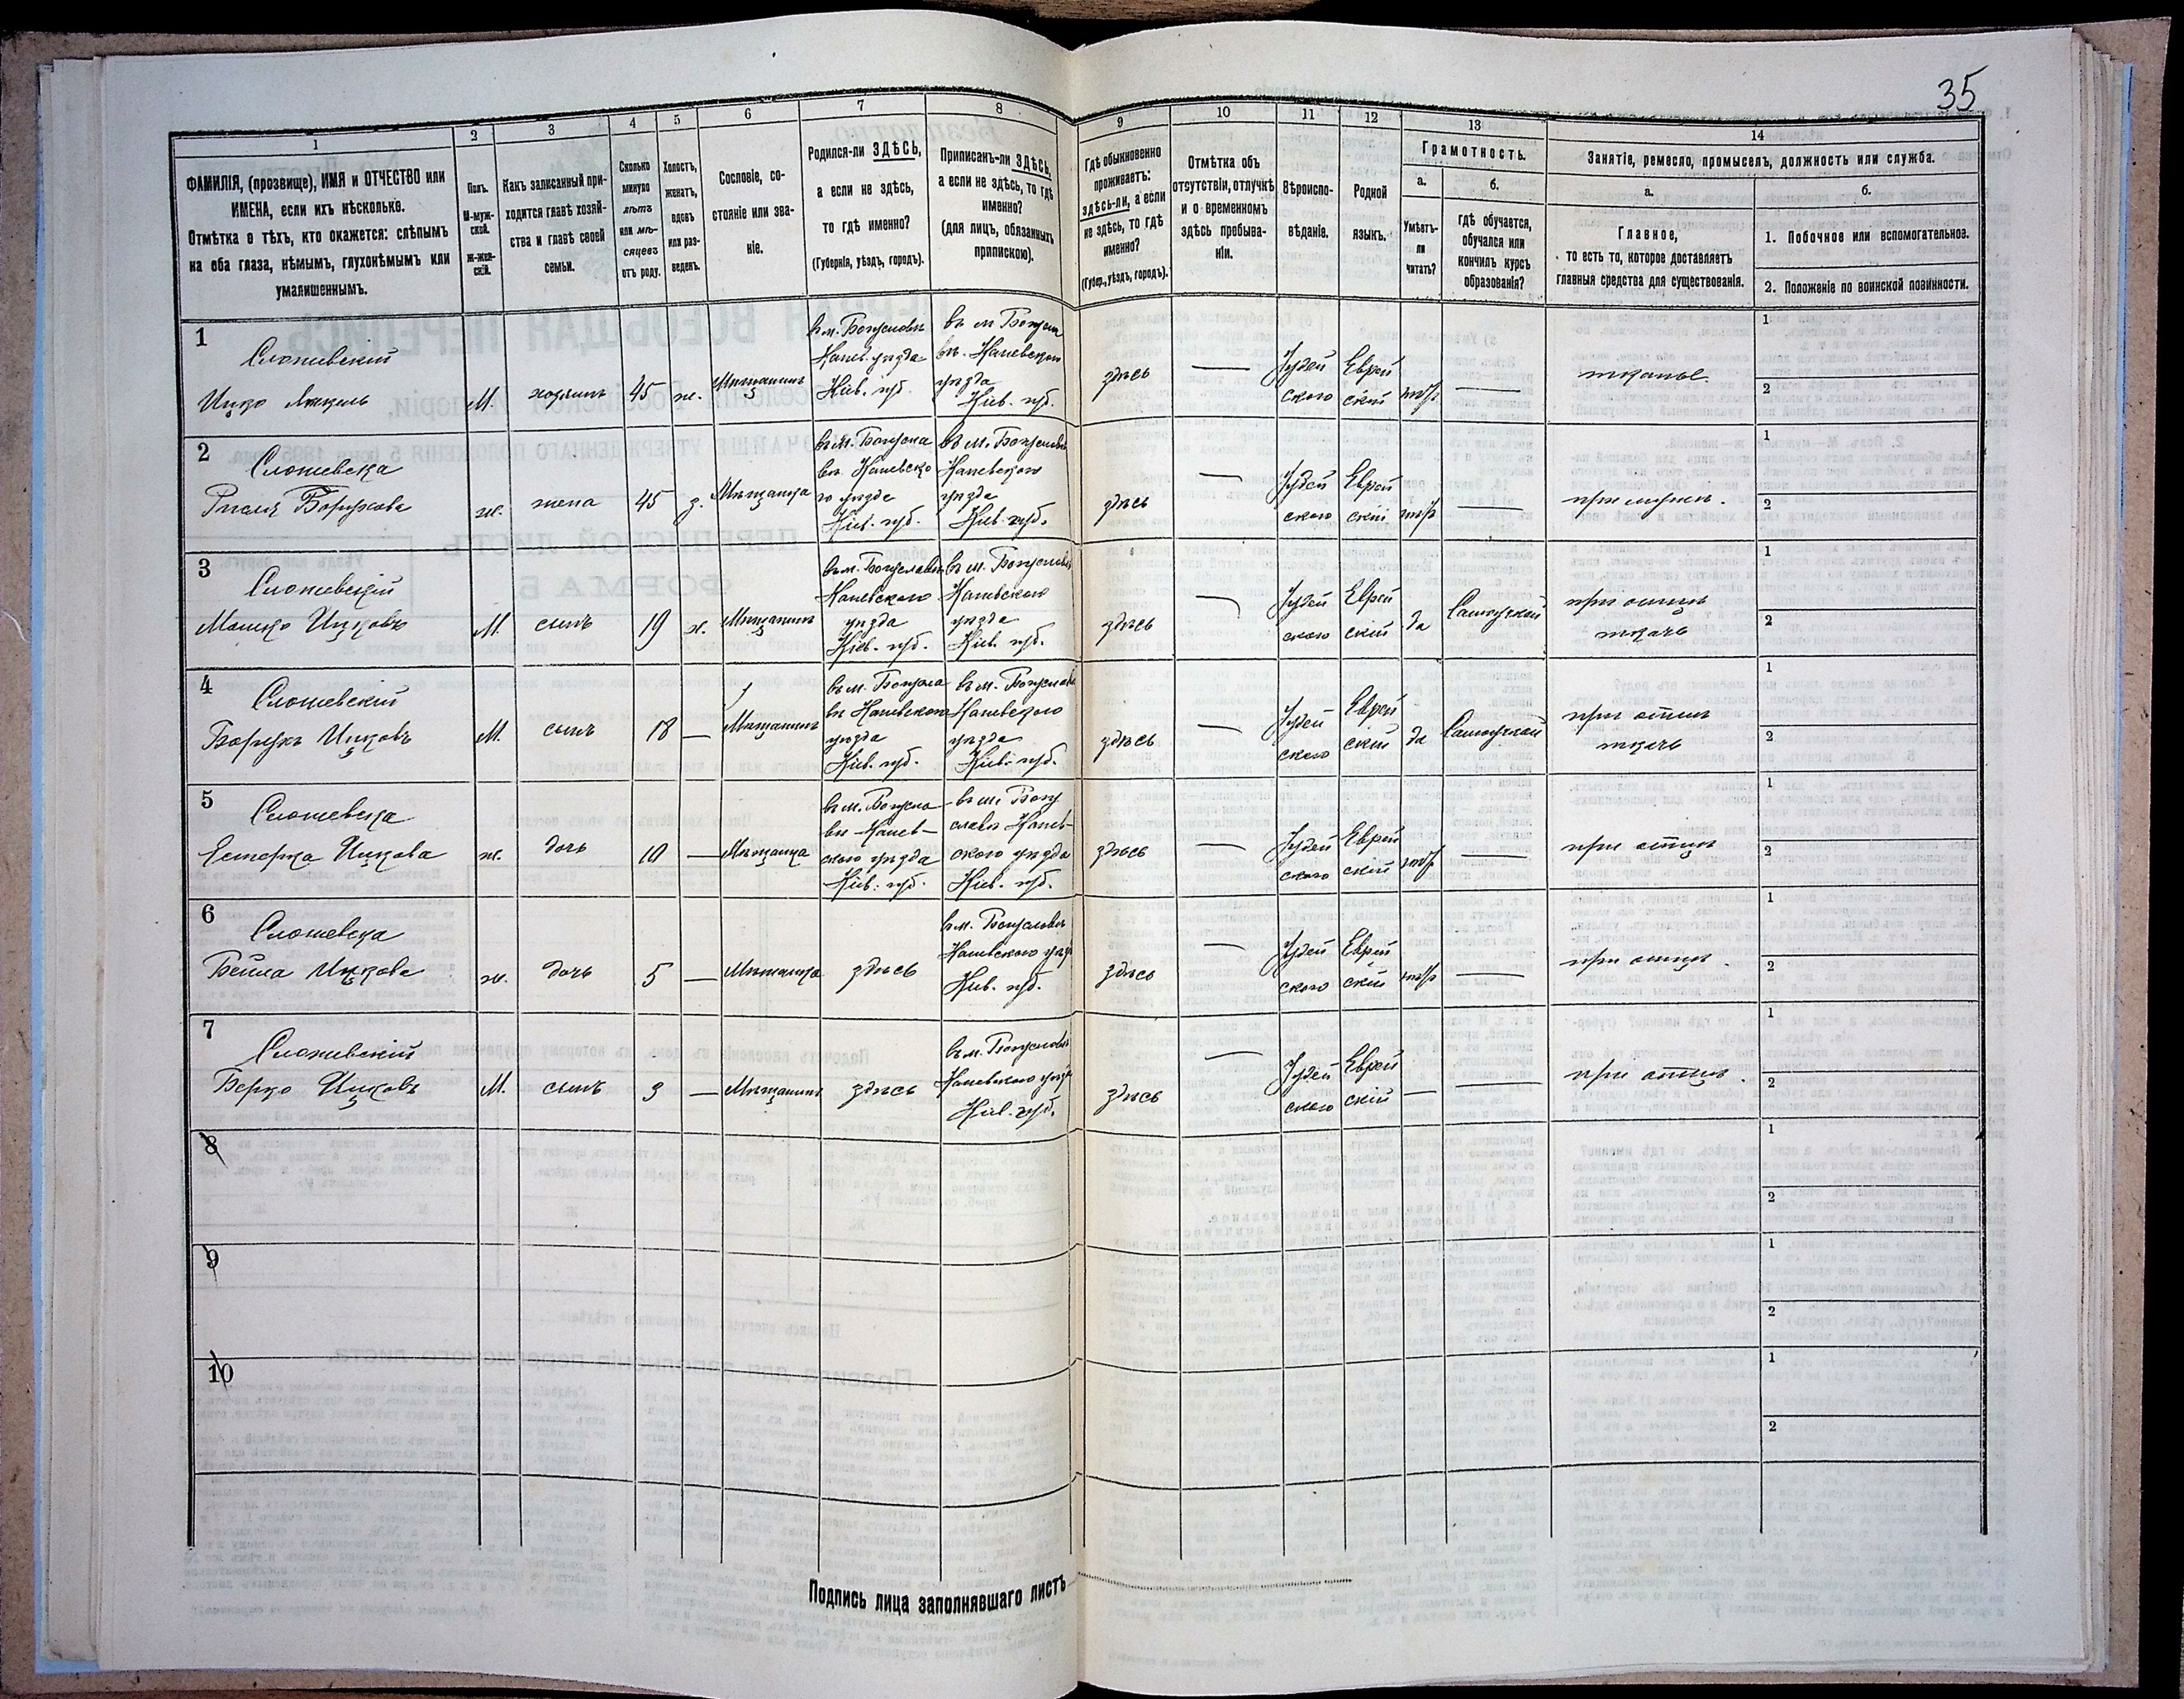 35
1
2
3
4
5
6
7
8
9
10
11
12
13
14
ФАМИЛІЯ, (прозвище), ИМЯ и ОТЧЕСТВО или
ИМЕНА, если ихъ нѣсколько.
Отмѣтка о тѣхъ, кто окажется: слѣпымъ
на оба глаза, нѣмымъ, глухонѣмымъ или
умалишеннымъ.
Полъ.
М-муж-
ской.
Ж-жен-
скій.
Какъ записанный при-
ходится главѣ хозяй-
ства и главѣ своей
семьи.
Сколько
минуло
лѣтъ
или мѣ-
сяцевъ
отъ роду.
Холостъ,
женатъ,
вдовъ
или раз-
веденъ.
Сословіе, со-
стояніе или зва-
ніе.
Родился-ли ЗДѢСЬ,
а если не здѣсь,
то гдѣ именно?
(Губернія, уѣздъ, городъ).
Приписанъ-ли ЗДѢСЬ,
а если не здѣсь, то гдѣ
именно?
(для лицъ, обязанныхъ
припискою).
Гдѣ обыкновенно
проживаетъ:
здѣсь-ли, а если
не здѣсь, то гдѣ
именно?
(Губер., уѣздъ, городъ).
Отмѣтка объ
отсутствіи, отлучкѣ
и о временномъ
здѣсь пребыва-
ніи.
Вѣроиспо-
вѣданіе.
Родной
языкъ.
Грамотность.
а.
Умѣетъ-
ли
читать?
б.
гдѣ обучается,
обучался или
кончилъ курсъ
образованія?
Занятіе, ремесло, промыселъ, должность или служба.
а.
Главное,
то есть то, которое доставляетъ
главныя средства для существованія.
б.
1. Побочное или вспомогательное.
2. Положеніе по воинской повинности.
1
Слошевскій
Ицко Янкель
М.
хозяинъ
45
ж.
Мѣщанинъ
въ м. Богуславѣ
Канев. уѣзда
Кіев. губ.
въ м Богусла
вѣ. Каневскаго
уѣзда
Кіев. губ.
здѣсь
Іудей
скаго
Еврей
скій
нѣт
тканье.
1
2
2
Слошевска
Борухова
ж.
жена
45
з.
Мѣщанка
въ м. Богусла
вѣ Каневско
го уѣзда
Кіев. губ.
въ м. Богуславѣ
Каневскаго
уѣзда
Кіев. губ.
здѣсь
Іудей
скаго
Еврей
скій
нѣт
при мужѣ.
1
2
3
Слошевскій
Мошко Ицковъ
М.
сынъ
19
х.
Мѣщанинъ
въ м. Богуславѣ
Каневскаго
уѣзда
Кіев. губ.
въ м. Богуславѣ
Каневскаго
уѣзда
Кіев. губ.
здѣсь
Іудей
скаго
Еврей
скій
да
Самоучкой
при отцѣ
ткачь
1
2
4
Слошевскій
Борухъ Ицковъ
М.
сынъ
18
Мѣщанинъ
въ м. Богусла
вѣ Каневскаго
уѣзда
Кіев. губ.
въ м. Богуславѣ
Каневскаго
уѣзда
Кіев. губ.
здѣсь
Іудей
скаго
Еврей
скій
да
Самоучкой
при отцѣ
ткачь
1
2
5
Слошевска
Естерка Ицкова
ж.
дочь
10
Мѣщанка
въ м. Богусла
вѣ Канев-
скаго уѣзда
Кіев. губ.
въ м. Богу
славѣ Канев-
скаго уѣзда
Кіев. губ.
здѣсь
Іудей
скаго
Еврей
скій
нѣт
при отцѣ
1
2
6
Слошевска
Бейла Ицкова
ж.
дочь
5
Мѣщанка
здѣсь
въ м. Богуславѣ
Каневскаго уѣзд
Кіев. губ.
здѣсь
Іудей
скаго
Еврей
скій
нѣт
при отцѣ.
1
2
7
Слошевскій
Берко Ицковъ
М.
сынъ
3
Мѣщанинъ
здѣсь
въ м. Богуславѣ
Каневскаго уѣзд
Кіев. губ.
здѣсь
Іудей
скаго
Еврей
скій
при отцѣ.
1
2
8
1
2
9
1
2
10
1
2
Подпись лица заполнявшаго листъ